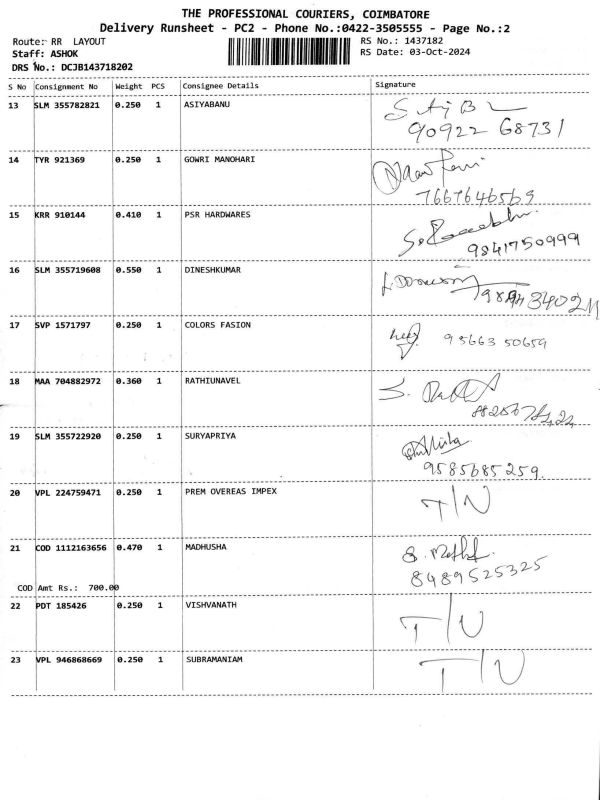 THE PROFESSIONAL COURIERS, COIMBATORE
Delivery Runsheet - PC2 - Phone No.:0422-3505555 - Page No.:2
Route: RR LAYOUT
RS No.: 1437182
Staff: ASHOK
RS Date: 03-Oct-2024
DRS No.: DCJB143718202
S No Consignment No Weight PCS Consignee Details Signature
13 SLM 355782821 0.250 1 ASIYABANU
90922 68731
14 TYR 921369 0.250 1 GOWRI MANOHARI
7667646569
15 KRR 910144 0.410 1 PSR HARDWARES
9841750999
16 SLM 355719608 0.550 1 DINESHKUMAR
17 SVP 1571797 0.250 1 COLORS FASION
95663 50659
18 MAA 704882972 0.360 1 RATHIUNAVEL
19 SLM 355722920 0.250 1 SURYAPRIYA
9585685259.
20 VPL 224759471 0.250 1 PREM OVEREAS IMPEX T/N
21 COD 1112163656 0.470 1 MADHUSHA
8489525325
COD Amt Rs.: 700.00
22 PDT 185426 0.250 1 VISHVANATH T/N
23 VPL 946868669 0.250 1 SUBRAMANIAM T/N